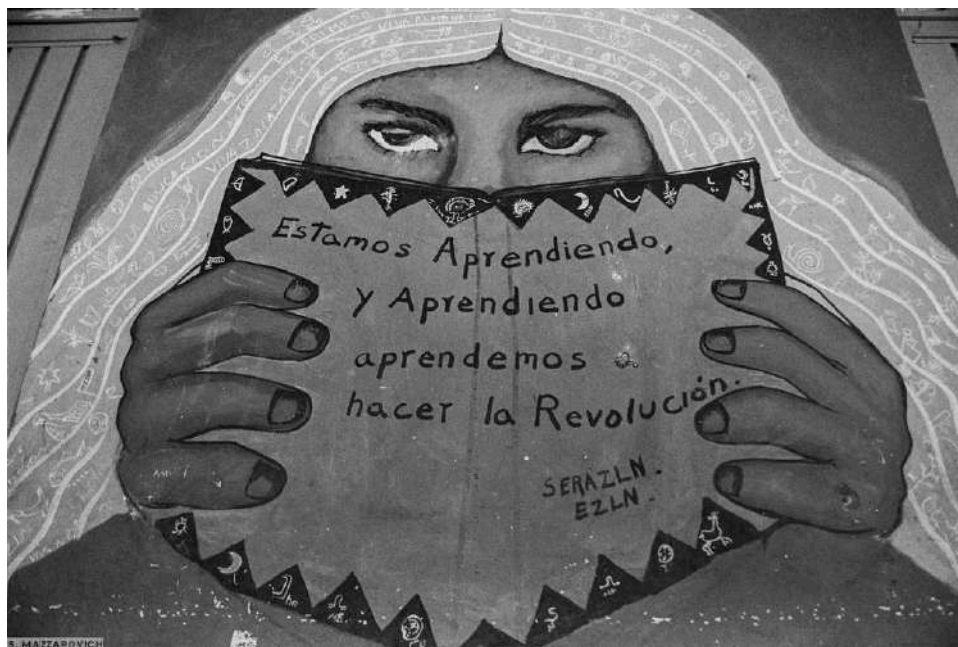 Estamos Aprendiendo,
y Aprendiendo
aprendemos a
hacer la Revolución.
SERAZLN.
EZLN.
S. MAZZAROVICH